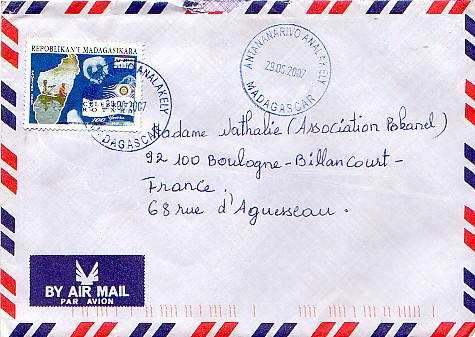 REPOBLIKAN'I MADAGASIKARA
100 Years
ANTANANARIVO ANALAKELY
29.06.2007
MADAGASCAR
ANALAKELY
29.06.2007
MADAGASCAR
Madame Nathalie (Association Pokanel)
92 100 Boulogne-Billancourt-
France.
68 rue d'Aguesseau.
BY AIR MAIL
PAR AVION